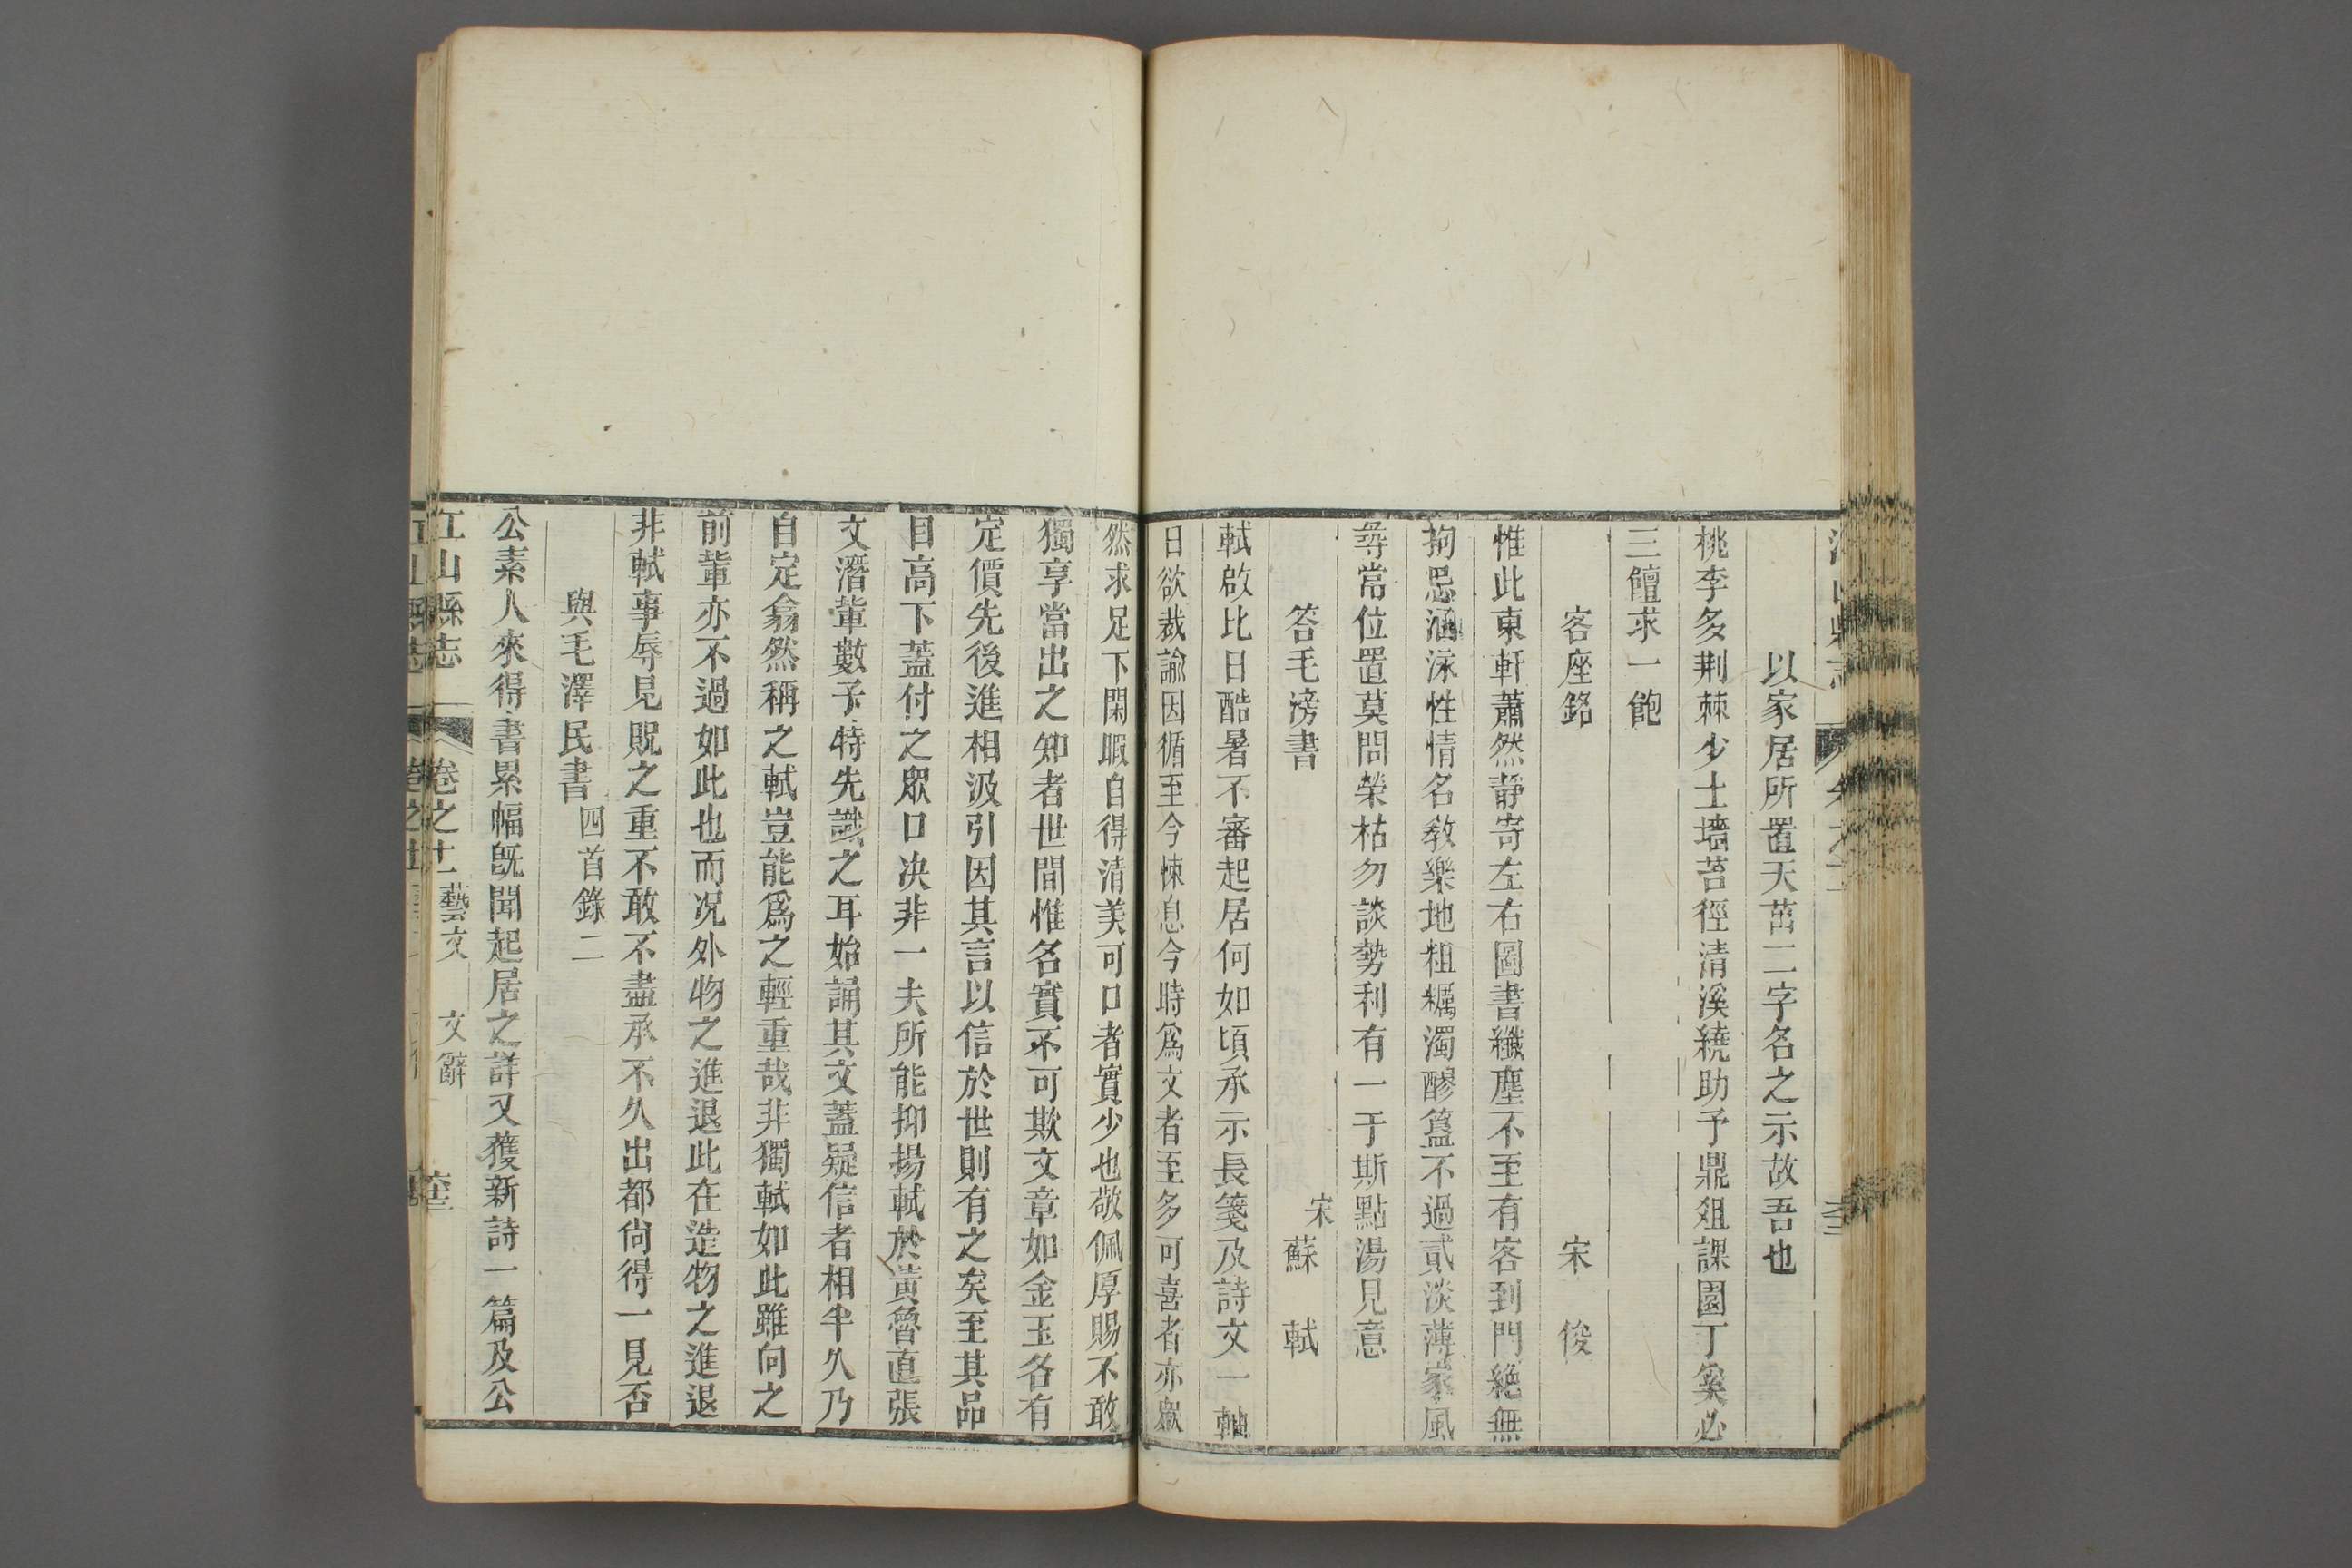 以家居所置天茁二字名之示故吾也
桃李多荆棘少土墻苔徑清溪繞助予鼎俎課園丁奚必
三饘求一飽
客座銘 宋 俊
惟此東軒蕭然靜寄左右圖書纖塵不至有客到門絶無
拘忌涵泳性情名敎樂地粗糲濁醪簋不過貳淡薄家風
尋常位置莫問榮枯勿談勢利有一于斯點湯見意
答毛滂書 宋 蘇 軾
軾啟比日酷暑不審起居何如頃承示長箋及詩文一軸
日欲裁諭因循至今悚息今時爲文者至多可喜者亦衆
然求足下閑暇自得清美可口者實少也敬佩厚賜不敢
獨享當出之知者世間惟名實不可欺文章如金玉各有
定價先後進相汲引因其言以信於世則有之矣至其品
目高下蓋付之衆口决非一夫所能抑揚軾於黃魯直張
文潛輩數子特先識之耳始誦其文蓋疑信者相半久乃
自定翕然稱之軾豈能爲之輕重哉非獨軾如此雖向之
前輩亦不過如此也而况外物之進退此在造物之進退
非軾事辱見貺之重不敢不盡承不久出都尙得一見否
與毛澤民書 四首錄二
公素人來得書累幅旣聞起居之詳又獲新詩一篇及公
江山縣志 卷之十一 藝文 文辭